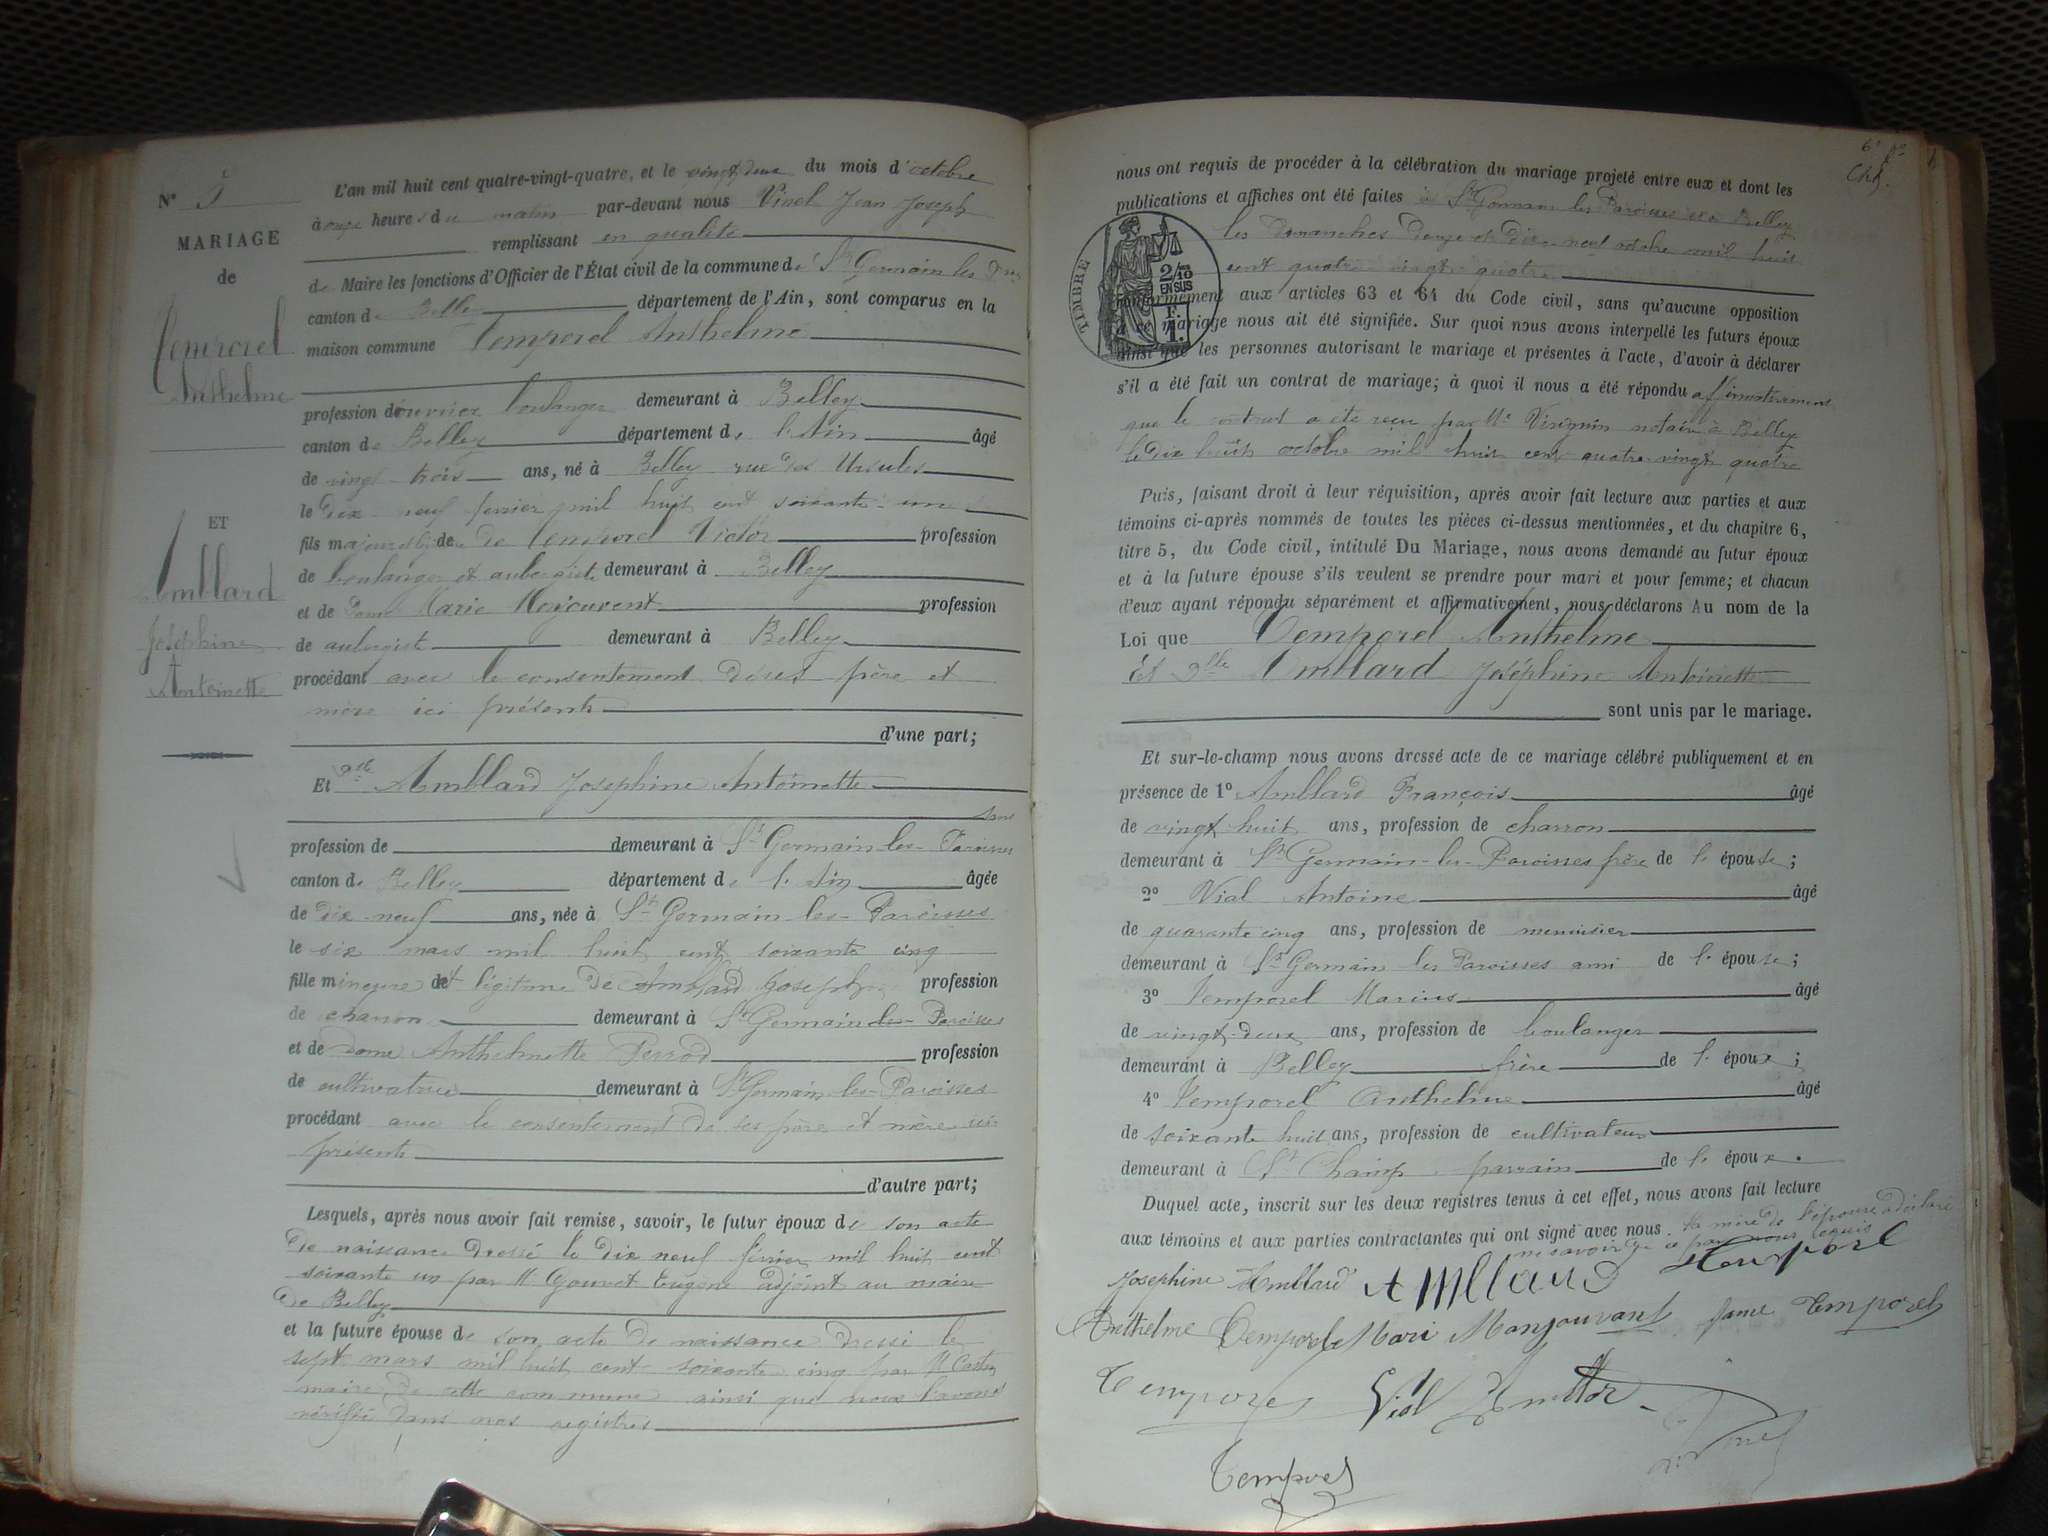 N° 5
MARIAGE
de
Temporel
Anthelme
ET
Amblard
Joséphine
Antoinette
L'an mil huit cent quatre-vingt-quatre, et le vingt deux du mois d'octobre
à onze heures du matin par-devant nous Vinel Jean Joseph
remplissant en qualité
de Maire les fonctions d'Officier de l'État civil de la commune de St Germain les
canton de Belley département de l'Ain, sont comparus en la
maison commune Temporel Anthelme
profession d'ouvrier boulanger demeurant à Belley
canton de Belley département de l'Ain âgé
de vingt trois ans, né à Belley rue des Ursules
le dix neuf février mil huit cent soixante un
fils majeur de Temporel Victor profession
de boulanger et aubergiste demeurant à Belley
et de Dame Marie profession
de aubergiste demeurant à Belley
procédant avec le consentement de ses père et
mère ici présents
d'une part;
Et Dlle Amblard Joséphine Antoinette
sans
profession de demeurant à St Germain-les-Paroisses
canton de Belley département de l'Ain âgée
de dix-neuf ans, née à St Germain-les-Paroisses
le six mars mil huit cent soixante cinq
fille mineure et légitime de Amblard Joseph profession
de charron demeurant à St Germain-les-Paroisses
et de dame Anthelmette Perrod profession
de cultivatrice demeurant à St Germain-les-Paroisses
procédant avec le consentement de ses père et mère ici
présents
d'autre part;
Lesquels, après nous avoir fait remise, savoir, le futur époux de son acte
de naissance dressé le dix neuf février mil huit cent
soixante un par M Gouvet Eugène adjoint au maire
de Belley
et la future épouse de son acte de naissance dressé le
sept mars mil huit cent soixante cinq par M
maire de cette commune ainsi que nous l'avons
vérifié dans nos registres
nous ont requis de procéder à la célébration du mariage projeté entre eux et dont les
publications et affiches ont été faites à St Germain les Paroisses et à Belley
les dimanches douze et dix neuf octobre mil huit
cent quatre vingt quatre
TIMBRE
2/10
EN SUS
F.
1.
conformément aux articles 63 et 64 du Code civil, sans qu'aucune opposition
à ce mariage nous ait été signifiée. Sur quoi nous avons interpellé les futurs époux
ainsi que les personnes autorisant le mariage et présentes à l'acte, d'avoir à déclarer
s'il a été fait un contrat de mariage; à quoi il nous a été répondu affirmativement
que le contrat a été reçu par Me notaire à Belley
le dix huit octobre mil huit cent quatre vingt quatre
Puis, faisant droit à leur réquisition, après avoir fait lecture aux parties et aux
témoins ci-après nommés de toutes les pièces ci-dessus mentionnées, et du chapitre 6,
titre 5, du Code civil, intitulé Du Mariage, nous avons demandé au futur époux
et à la future épouse s'ils veulent se prendre pour mari et pour femme; et chacun
d'eux ayant répondu séparément et affirmativement, nous déclarons Au nom de la
Loi que Temporel Anthelme
Et Dlle Amblard Joséphine Antoinette
sont unis par le mariage.
Et sur-le-champ nous avons dressé acte de ce mariage célébré publiquement et en
présence de 1° Amblard François âgé
de vingt huit ans, profession de charron
demeurant à St Germain-les-Paroisses frère de l'épouse;
2° Vial Antoine âgé
de quarante cinq ans, profession de menuisier
demeurant à St Germain les Paroisses ami de l'épouse;
3° Temporel Marius âgé
de vingt-deux ans, profession de boulanger
demeurant à Belley frère de l'époux;
4° Temporel Anthelme âgé
de soixante huit ans, profession de cultivateur
demeurant à St Champ parrain de l'époux.
Duquel acte, inscrit sur les deux registres tenus à cet effet, nous avons fait lecture
aux témoins et aux parties contractantes qui ont signé avec nous. La mère de l'épouse a déclaré
ne savoir de ce par nous requis
Joséphine Amblard Amblard Temporel
Anthelme Temporel Mari Monjouvant fame Temporel
Temporel Vial
Temporel